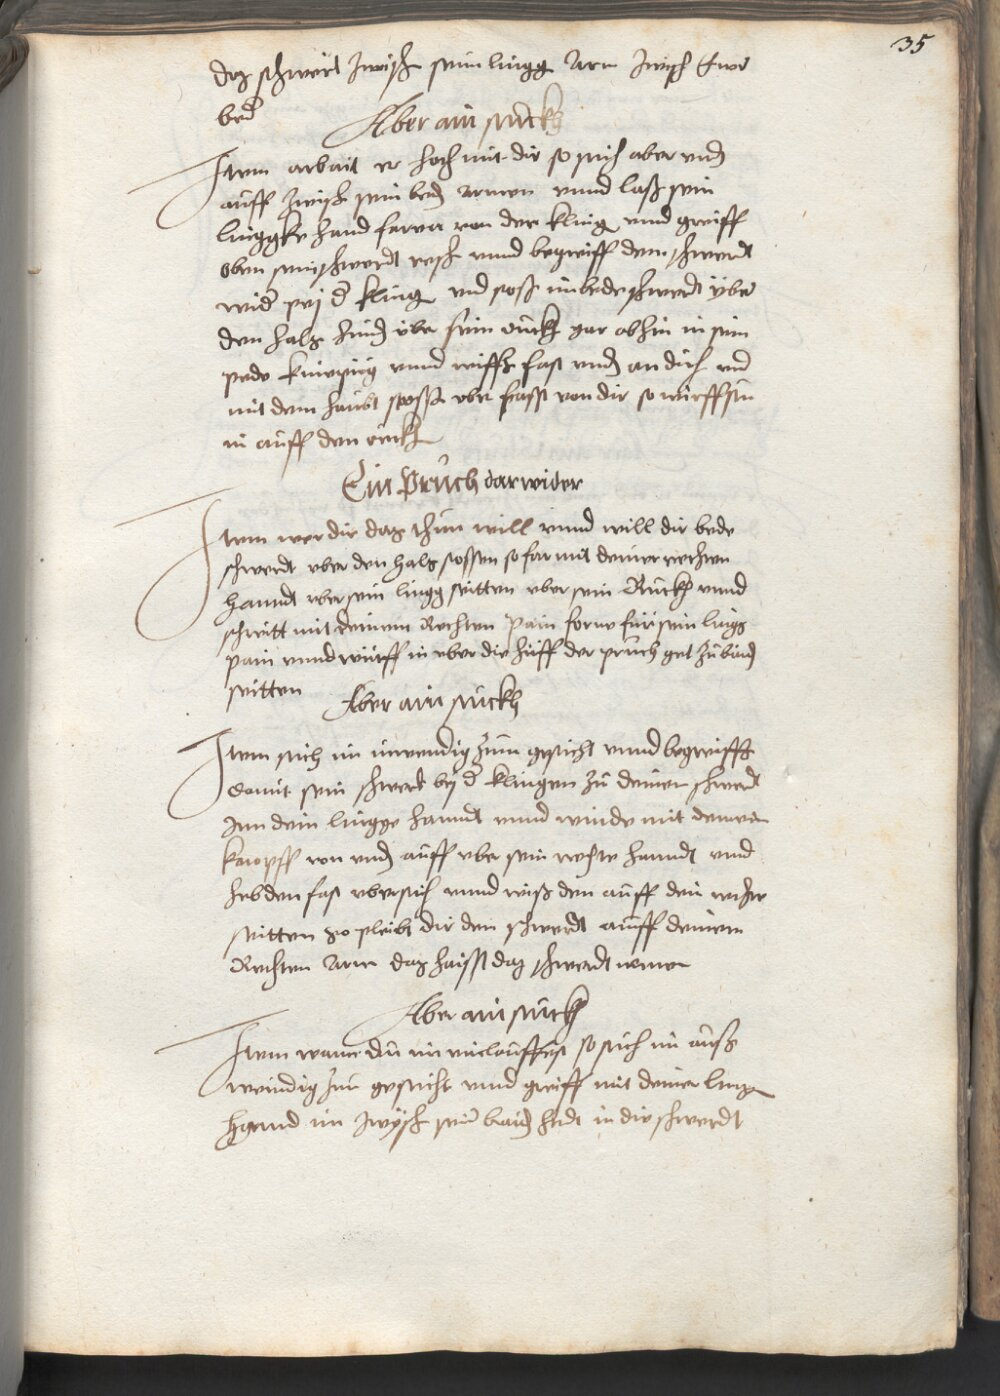 35
daz schwert zwisch seim lingg Arm zwisch Ewr
bed
Aber ain stuckh
Item arbait er hoch mit dir so stich aber vnd
auff zwisch sein bed armen vnnd lasz sein
linggke hand farn von der kling vnnd greiff
oben sein schwerdt resch vnnd begreiff dein schwerdt
wider pej d kling vnd stosz im bede schwerdt yber
den halsz hind vber sein ruck gar abhin in sein
pede kniepüg vnnd reissz fast vnd an dich vnd
mit dem haubt stossz vber fasst von dir so wirffstu
in auff den ruckh
Ein Pruch darwider
Item wer dir daz thun will vnnd will dir bede
schwerdt vber den halsz stossen so far mit deiner rechten
hanndt vber sein lingg seitten vber sein Ruckh vnnd
schritt mit deinem Rechten Pain forne für sein lingg
pain vnnd würff in vber die hüff der pruch get zu baid
seitten
Aber ain stuckh
Item stich im inwendig zum gesicht vnnd begreiffz
damit sein schwerdt bej d klingen zu deinem schwerdt
Inn dein lingge hanndt vnnd winde mit deinem
knopff von vnd auff vber sein rechte hanndt vnd
heb den fast vbersich vnnd reisz den auff dein rechte
seitten so pleibt dir dein schwerdt auff deinem
Rechten Arm daz haisst daz schwerdt nemen
Aber ain stuckh
Item wann du im einlauffest so stich im ausz
wendig zum gesicht vnnd greiff mit deiner lingg
hannd im zwysch sein baid hendt in die schwerdt